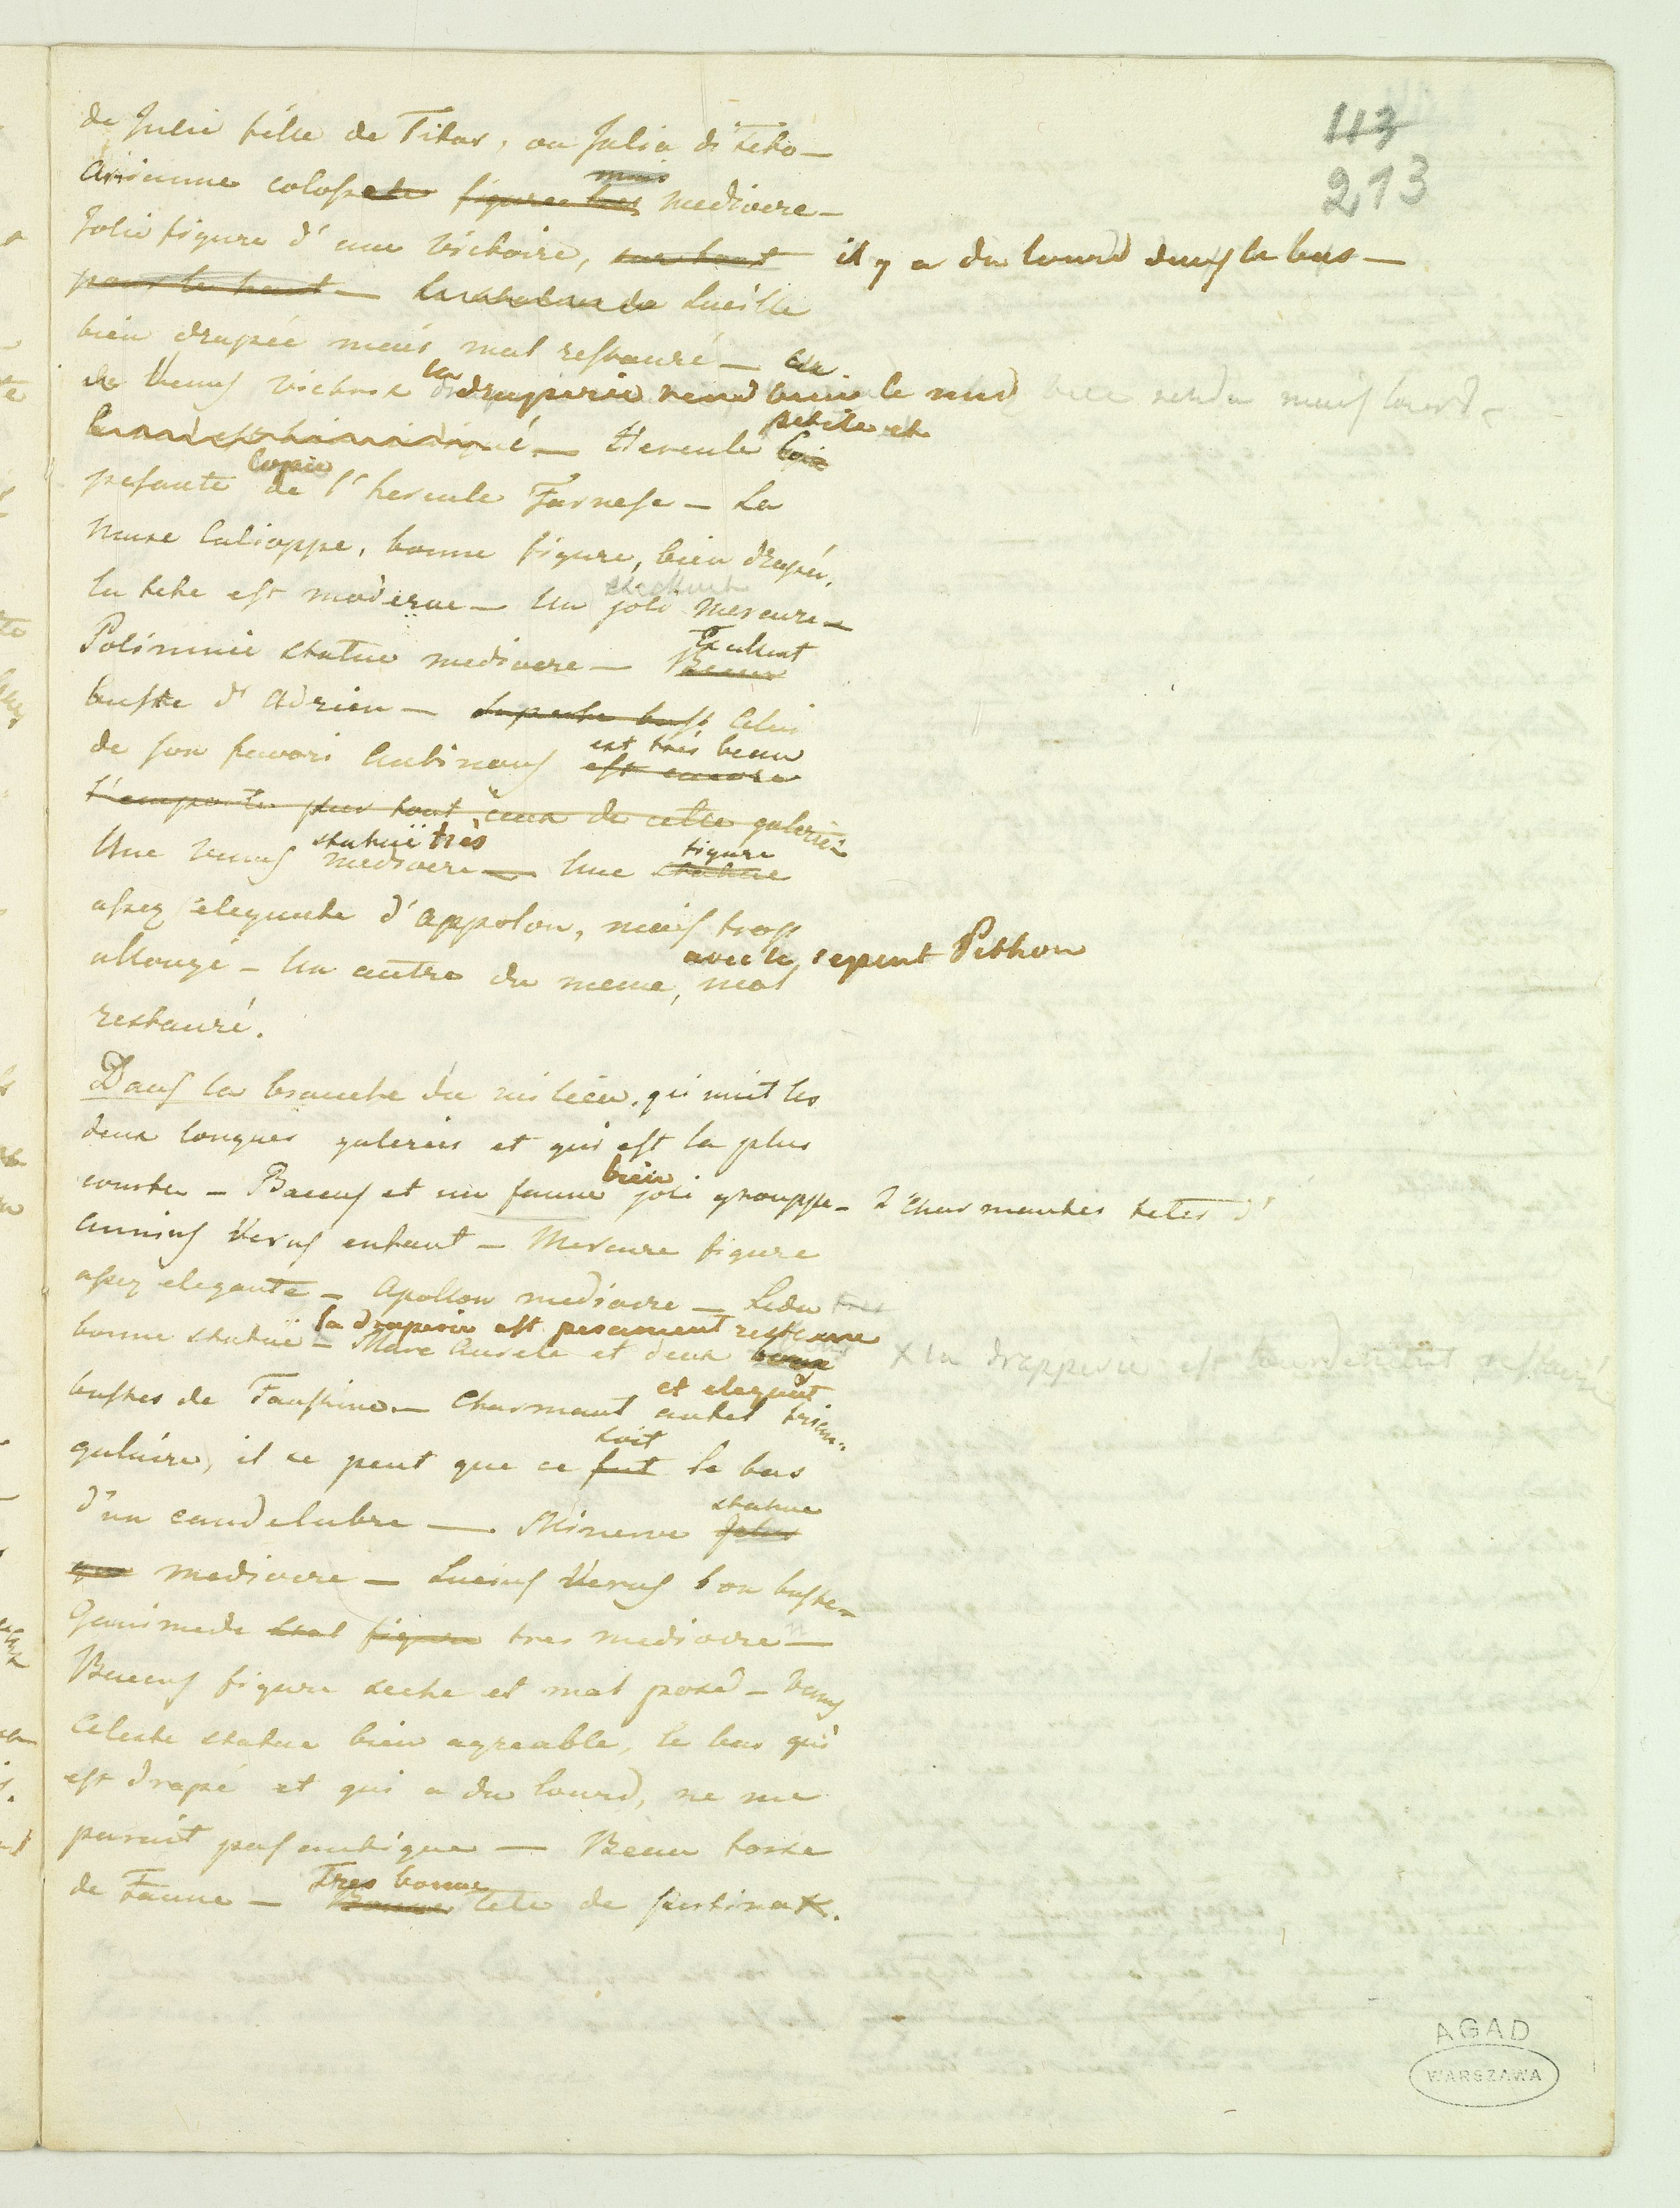 113
213
de Julie fille de Titus, ou Julia di Tito —
mais
Arrienne colossale figure tres mediocre —
Jolie figure d'une Victoire, sur tout il y a du lourd dans le bas —
pour le haut — La statue de Lucille
bien drapée mais mal restauré —
de Venus Victrix la draperie rend bien le nud
petite et
Hercule
copie
pesante de l'hercule Farnese — La
Muse Calioppe, bonne figure, bien drapée,
la tete est moderne — Un joli Mercure —
Excellent
Polimnie statue mediocre — Beau
buste d'Adrien — Superbe buste Celui
est très beau
de son favori Antinous est encore
l'emporte sur tout ceux de cette galerie
statuë très figure
Une Venus mediocre — Une statue
assez elegante d'Appolon, mais trop
avec le sepent Pithon
allongé — Un autre du meme, mal
restauré.
Dans la branche du milieu, qui unit les
deux longues galeries et qui est la plus
bien
courte — Baccus et un faune joli grouppe — 2 Charmantes tetes d'
Annius Verus enfant — Mercure figure
assez elegante — Apollon mediocre — Leda tres
la draperie est pesament restaurée
bonne statuë — Marc Aurele et deux beaux × la drapperie est lourdement restauré
et elegant
bustes de Faustine — Charmant autel trian-
soit
gulaire, il ce peut que ce fut le bas
statue
d'un candelabre — Minerve
mediocre — Lucius Verus bon buste —
Ganimede figure tres mediocre —
Baccus figure seche et mal posé — Venus
Celeste statue bien agreable, le bas qui
est drapé et qui a du lourd, ne me
parait pas antique — Beau torse
Tres bonne
de Faune — Bonne tete de Pertinax.
AGAD
WARSZAWA